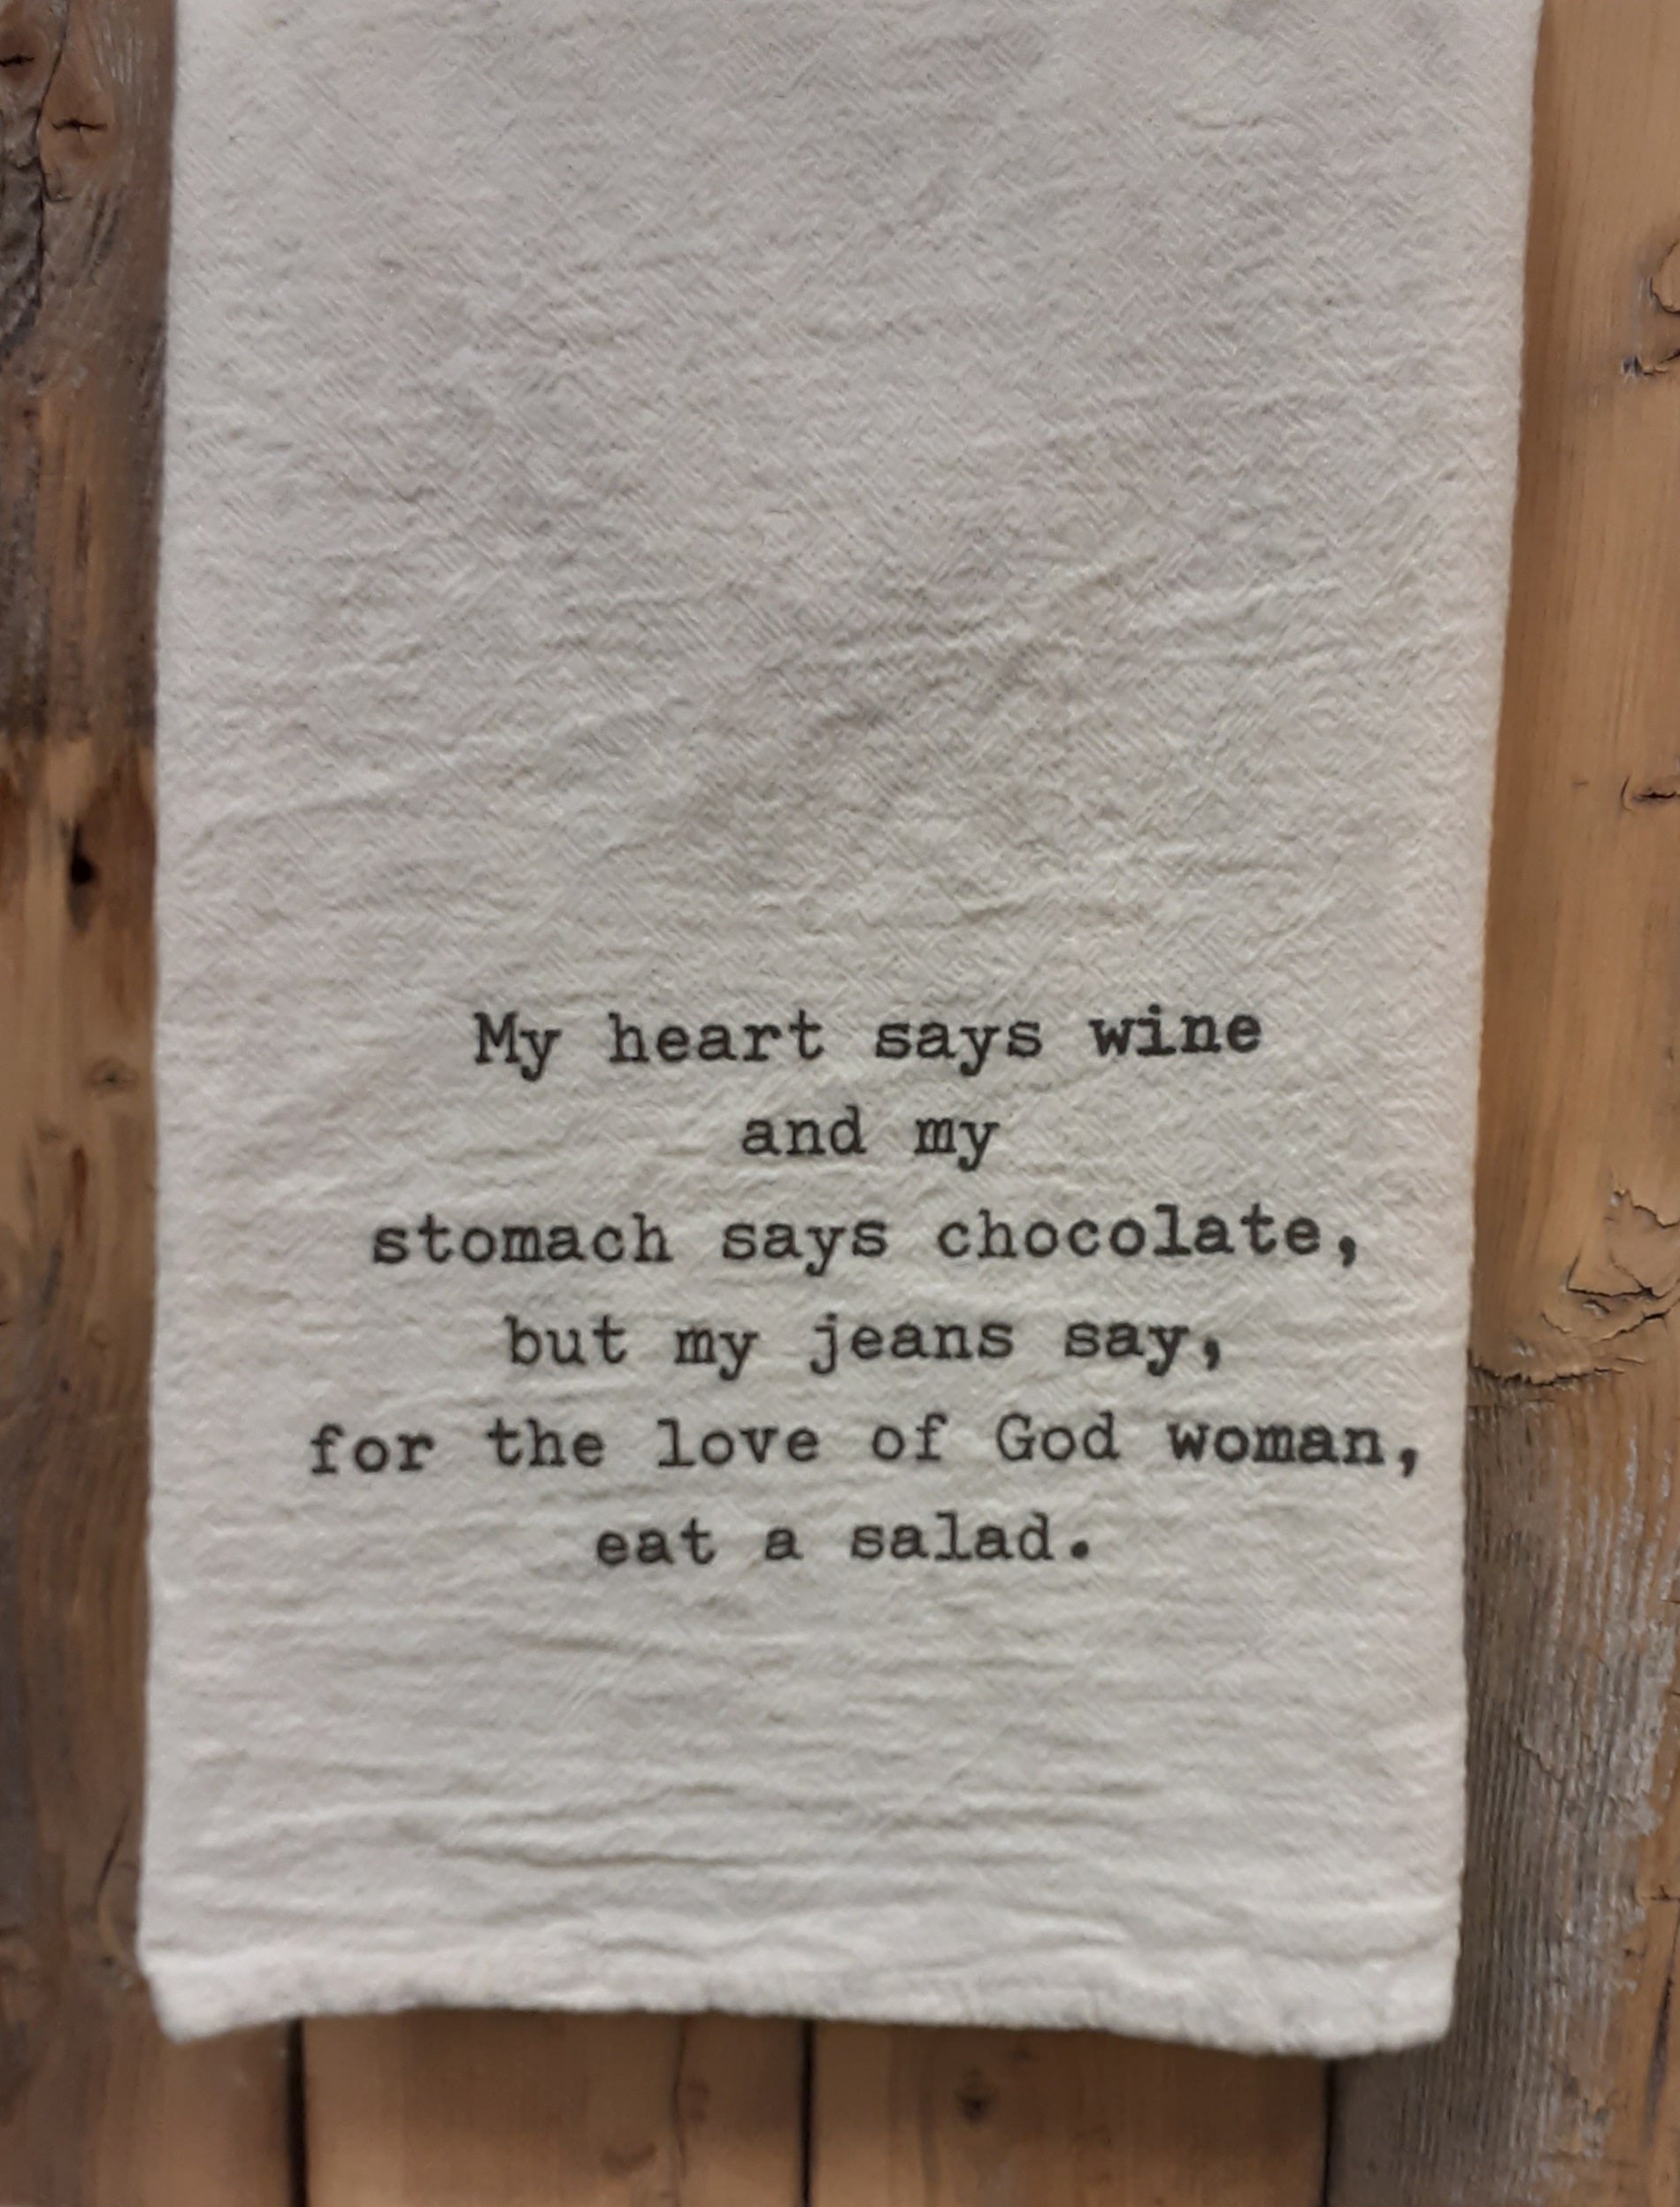 My heart says wine
and my
stomach says chocolate,
but my jeans say,
for the love of God woman,
eat a salad.